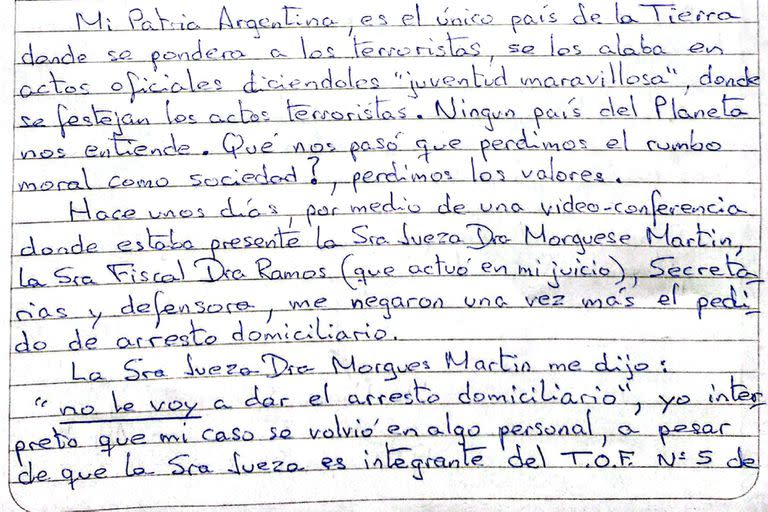 Mi Patria Argentina, es el único país de la Tierra
donde se pondera a los terroristas, se los alaba en
actos oficiales diciendoles "juventud maravillosa", donde
se festejan los actos terroristas. Ningun país del Planeta
nos entiende. Qué nos pasó que perdimos el rumbo
moral como sociedad?, perdimos los valores.
Hace unos días, por medio de una video-conferencia
donde estaba presente la Sra Jueza Dra Morguese Martin,
la Sra Fiscal Dra Ramos (que actuó en mi juicio), Secreta-
rias y defensora, me negaron una vez más el pedi-
do de arresto domiciliario.
La Sra Jueza Dra Morgues Martin me dijo:
"no le voy a dar el arresto domiciliario", yo inter-
preto que mi caso se volvió en algo personal, a pesar
de que la Sra Jueza es integrante del T.O.F. Nº 5 de